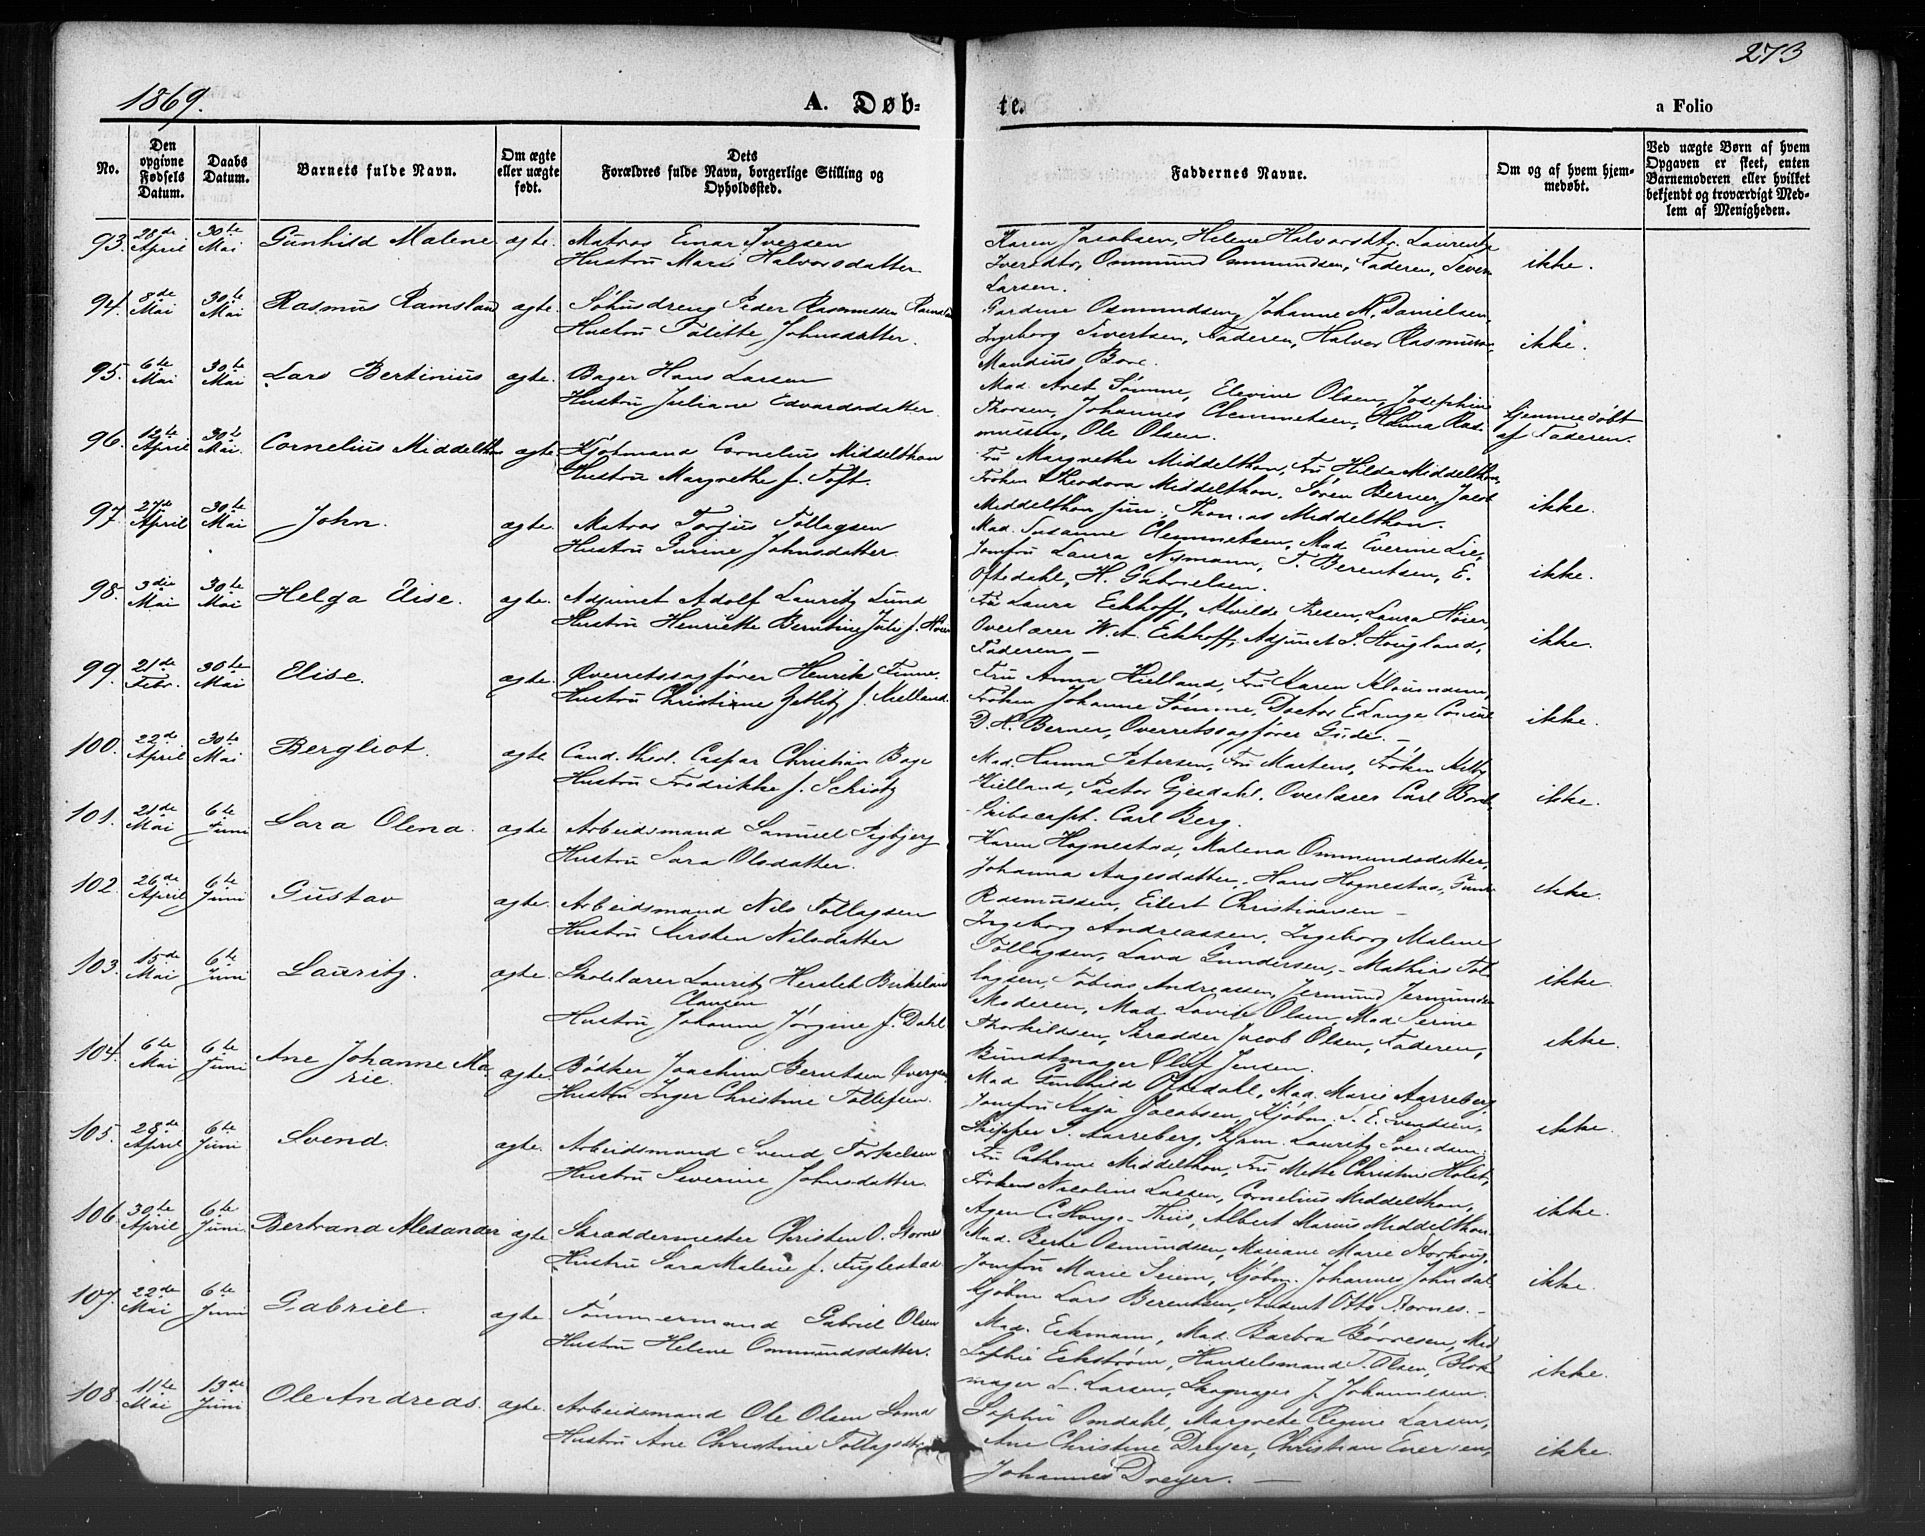 1869.
A. Døb-
te.
a Folio
273
No.
Den opgivne Fødsels Datum.
Daabs Datum.
Barnets fulde Navn.
Om ægte eller uægte født.
Dets Forældres fulde Navn, borgerlige Stilling og Opholdssted.
Faddernes Navne.
Om og af hvem hjemmedøbt.
Ved uægte Børn af hvem Opgaven er skeet, enten Barnemoderen eller hvilket bekjendt og troværdigt Medlem af Menigheden.
93. 28de April 30te Mai Gunhild Malene ægte. Matros Einar Iversen
Hustru Mari Halvorsdatter
Karen Jacobsen, Helene Halvorsdtr, Laurentze
Iversdtr, Ommund Ommundsen, Faderen, Steven
Larsen.
ikke.
94. 8de Mai 30te Mai Rasmus Ramsland ægte. Peder Rasmussen Ramsland
Hustru Johnsdatter.
Gardine Osmundsen, Johanne M. Danielsen,
Ingeborg Sivertsen, Faderen, Halvor Rasmussen,
Mandius Boe.
ikke.
95. 6te Mai 30te Mai Lars Bertinius ægte. Bager Hans Larsen
Hustru Juliane Edvardsdatter.
Mad. Aret Sømme, Elevine Olsen, Josephine
Thorsen, Johannes Clemmetsen, Helma Ras-
mussen, Ole Olsen.
hjemmedøbt
af Faderen.
96. 12te April 30te Mai. Cornelius Middelthon ægte Kjøbmand Cornelius Middelthon
Hustru Margrethe f. Toft.
Fru Margrethe Middelthon, Fru Hilda Middelthon,
Frøken Theodora Middelthon, Søren Berner, Jacob
Middelthon jun. Thomas Middelthon.
ikke.
97. 27de April 30te Mai John. ægte. Matros Torjus Tollagsen
Hustru Gurine Johnsdatter
Mad. Susanne Clemmetsen, Mad. Everine Lie,
Jomfru Laura Nymann, T. Berentsen, E.
Oftedahl, H. Gabrielsen.
ikke.
98. 3die Mai 30te Mai Helga Elise. ægte. Adjunct Adolf Lauritz Lund
Hustru Henriette Berntine Julie f. Høier
Fru Laura Eckhoff, Alvilde Resen, Laura Høier,
Overlærer W. A. Eckhoff, Adjunct S. Hougland,
Faderen –
ikke.
99. 21de Febr. 30te Mai Elise. ægte. Overretssagfører Henrik Finne.
Hustru Christiane Zetlitz f. Kielland.
Fru Anna Kielland, Fru Karen
Frøken Johanne Sømme, Doctor E. Lange, Consul
D. H. Berner, Overretssagfører Gude. –
ikke.
100. 22de April 30te Mai Bergliot. ægte. Cand. theol. Caspar Christian Bage
Hustru Fredrikke f. Schiøtz
Mad. Hanna Petersen, Fru Martens, Frøken
Kielland, Pastor Gjesdahl, Overlærer Carl
Skibscapt. Carl Berg.
ikke.
101. 21de Mai 6te Juni Sara Olena. ægte Arbeidsmand Samuel
Hustru Sara Olsdatter.
Karen Hognestad, Malena Ommundsdatter,
Johanna Aagesdatter, Hans Hognestad,
Rasmussen, Eilert Christiansen –
ikke.
102. 26de April 6te Juni Gustav ægte. Arbeidsmand Nils Tollagsen
Hustru Kirsten Nilsdatter
Ingeborg Andreassen, Ingeborg Malene
Tollagsen, Lava Gundersen, – Mathias Tol-
lagsen, Tobias Andreassen, Jermund Jermundsen
ikke.
103. 15de Mai 6te Juni Lauritz. ægte. Skolelærer Lauritz Herslet Birkeland
Clausen
Hustru Johanne Jørgine f. Dahl
Moderen, Mad. Lovise Olsen, Mad Serine
Thorkildsen, Skrædder Jacob Olsen, Faderen,
Bundtmager Oluf Jensen.
ikke.
104. 6te Mai 6te Juni Ane Johanne Ma-
rie. ægte. Bødker Joachim Berntsen
Hustru Inger Christine Tollefsen.
Mad Gunhild Oftedahl, Mad. Marie Aarreberg,
Jomfru Kaja Jacobsen, Kjøbm. S. E. Svendsen,
Skipper S. Aarreberg, Lauritz Svendsen.
ikke.
105. 28de April 6te Juni Svend. ægte. Arbeidsmand Svend Torkelsen
Hustru Severine Johnsdatter.
Fru Cathrine Middelthon, Fru Mette Christine Holst,
Frøken Nicoline Larsen, Cornelius Middelthon,
Agent C. Houge-Thiis, Albert Marius Middelthon
ikke.
106. 30te April 6te Juni Bertrand Alexander ægte. Skræddermester Christen O. Stornes
Hustru Sara Malene f. Fuglestad.
Mad. Berte Osmundsen, Mariane Marie Storhoug,
Jomfru Marie Seiem, Kjøbm. Johannes Johndal
Kjøbm Lars Berentsen, Student Otto Stornes. –
ikke.
107. 22de Mai 6te Juni Gabriel. ægte. Tømmermand Gabriel Olsen
Hustru Helene Ommundsdatter.
Mad. Eckmann, Mad. Barbra Børresen, Mad
Sophie Eckstrøm, Handelsmand T. Olsen, Blok-
mager L. Larsen, Skomager J. Johannesen.
ikke.
108. 11te Mai 13de Juni Ole Andreas. ægte. Arbeidsmand Ole Olsen
Hustru Ane Christine Tollagsdtr.
Sophie Omdahl, Margrete Regine Larsen,
Ane Christine Dreyer, Christian Evensen,
Johannes Dreyer. –
ikke.